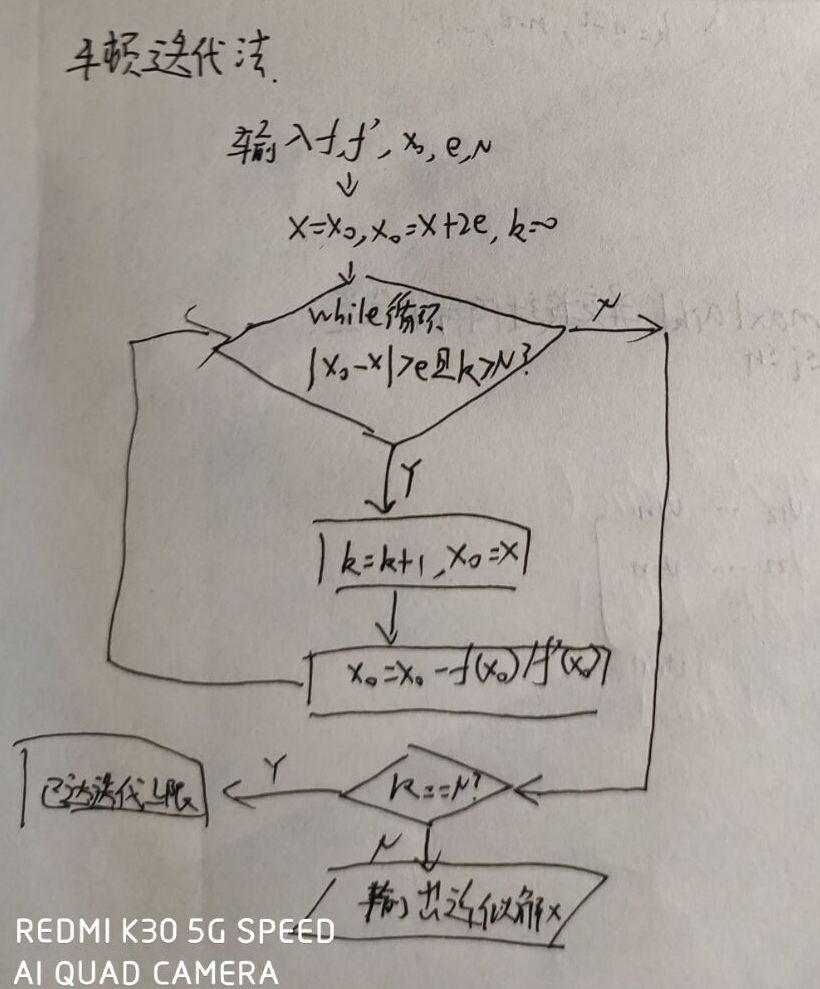 牛顿迭代法.
输入f,f', x₀, e,N
x=x₀,x₀=x+2e, k=0
while循环
|x₀-x|>e且k>N?
N
Y
k=k+1,x₀=x
x₀=x₀-f(x₀)/f'(x₀)
k==N?
Y
已达迭代上限
N
输出近似解x
REDMI K30 5G SPEED
AI QUAD CAMERA